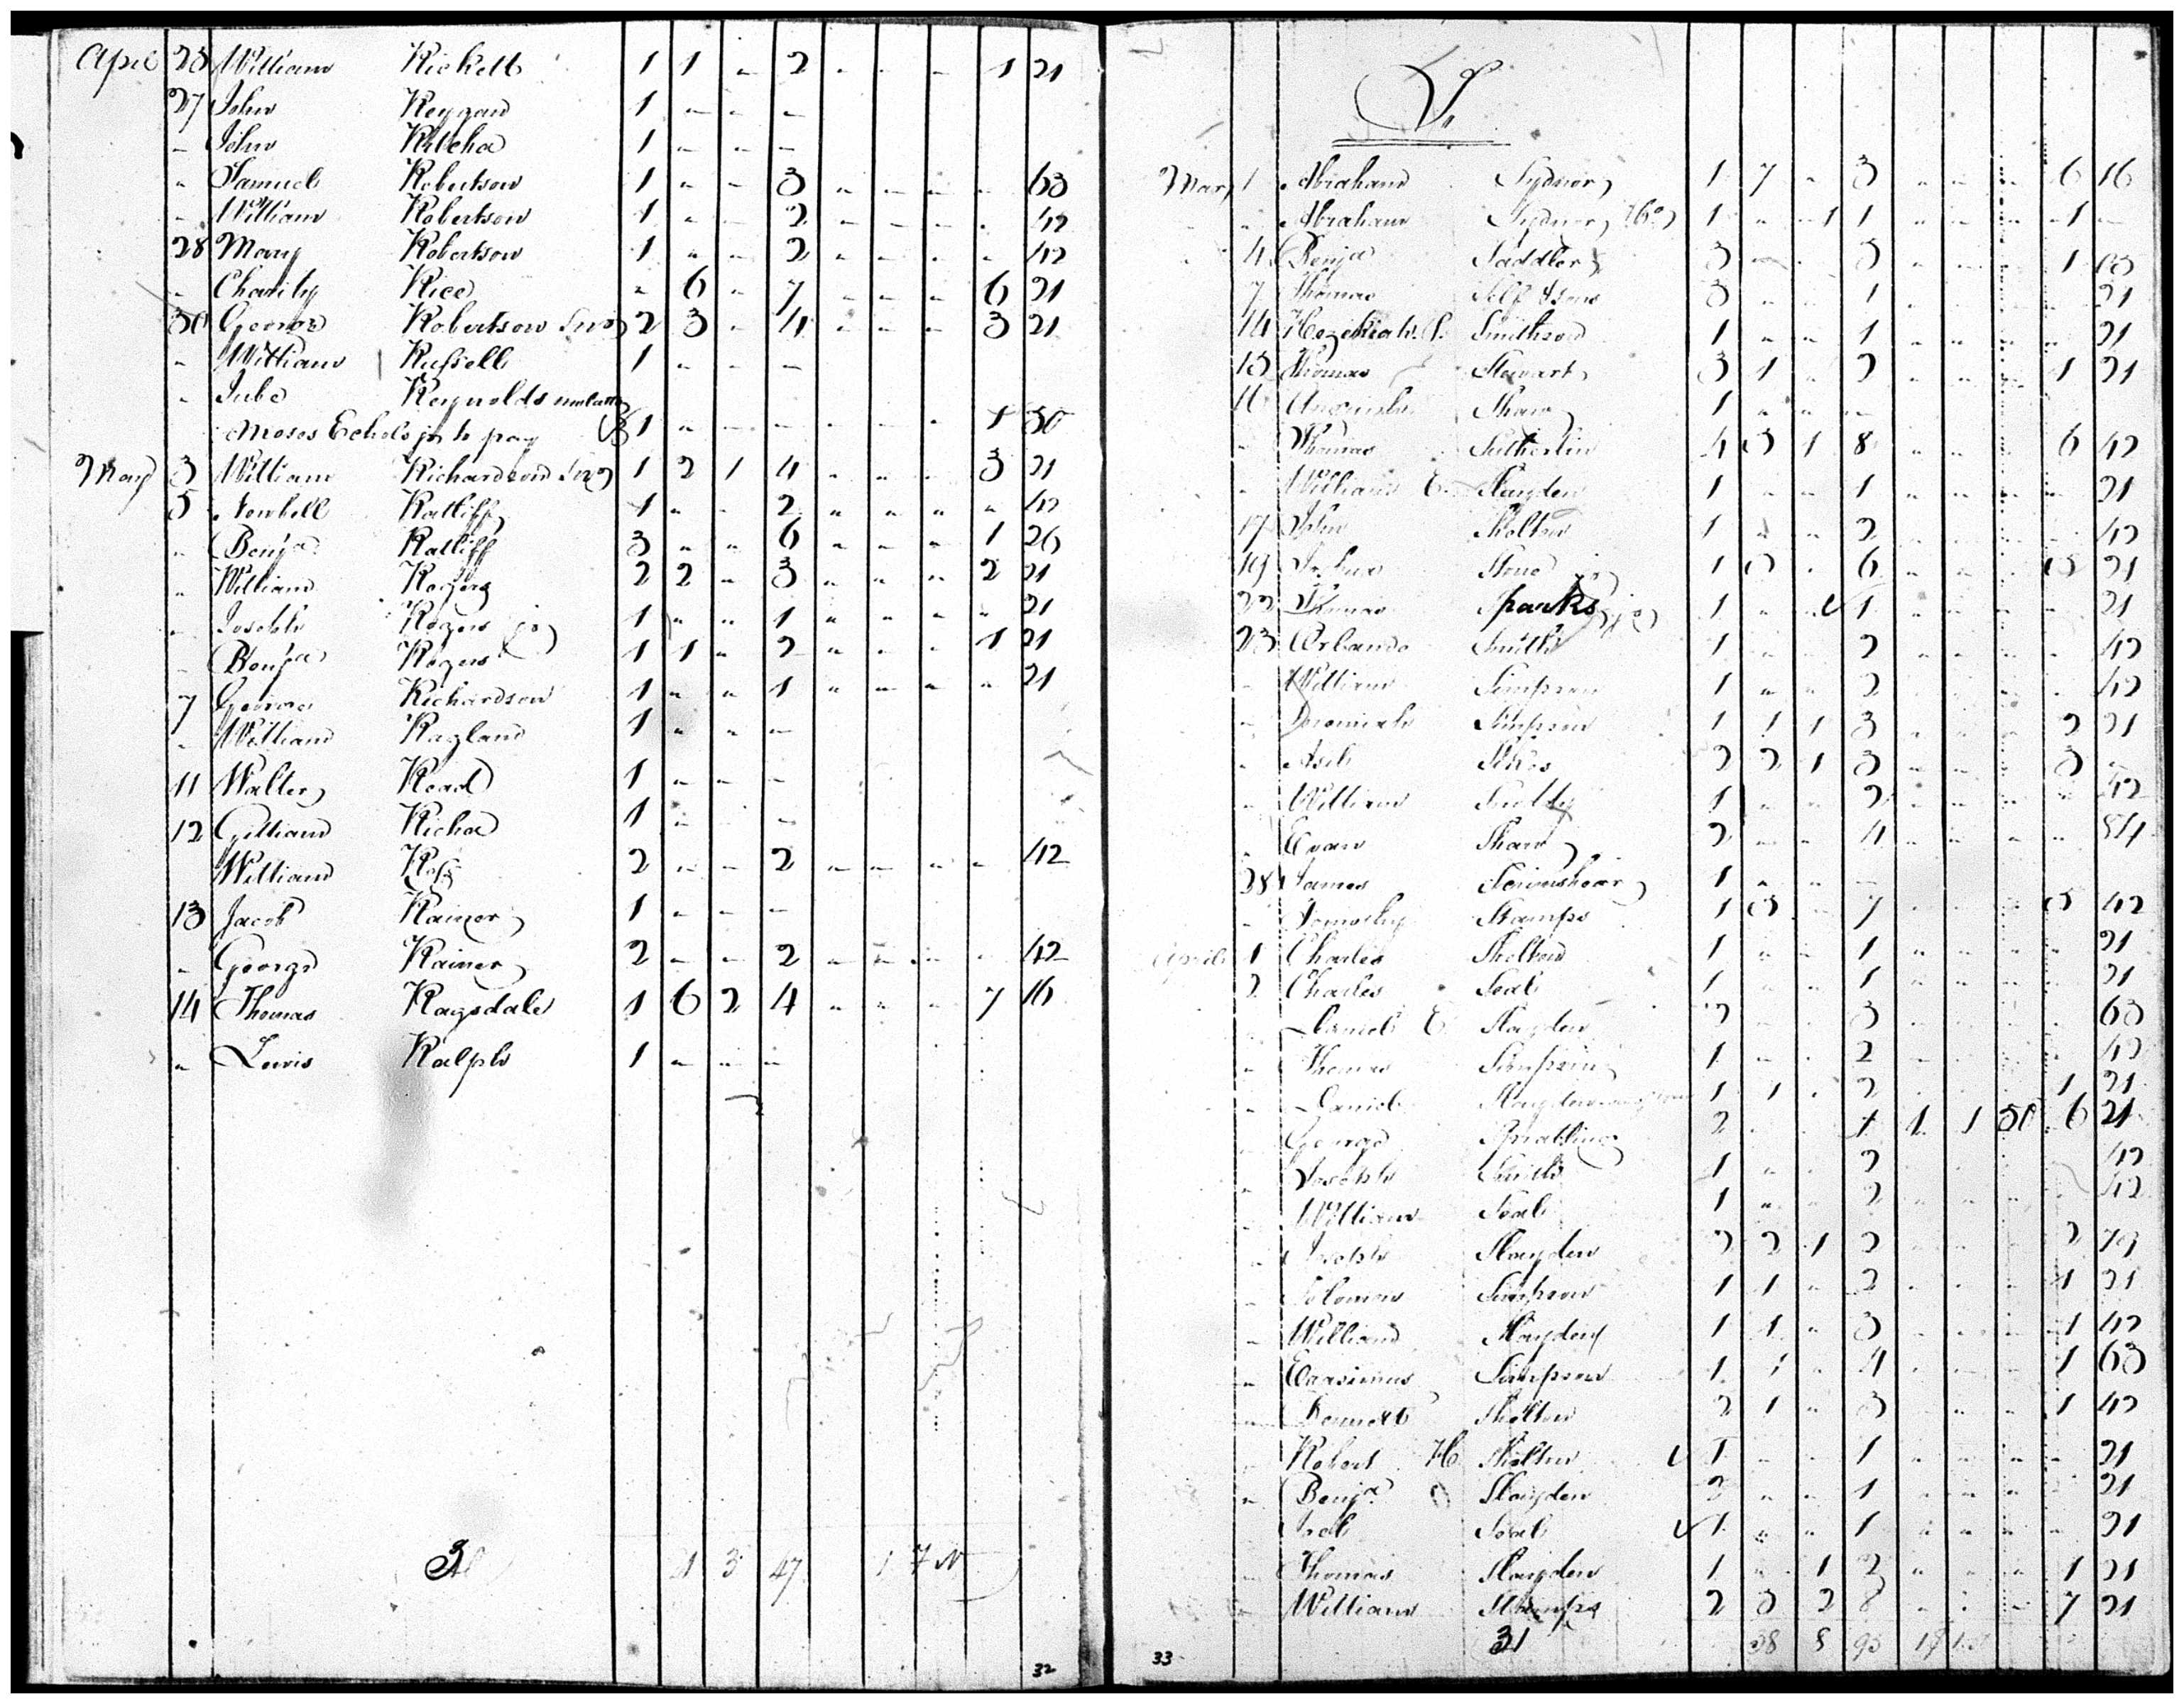 April 23 William Rickett 1 1 - 2 - - - 1 21
27 John Reygan 1 - - -
- John Ritcha 1 - - -
" Samuel Robertson 1 - - 3 - - - - 63
- William Robertson 1 - - 2 - - - - 42
28 Mary Robertson 1 - - 2 - - - - 42
- Charity Rice - 6 - 7 - - - 6 21
30 George Robertson Snr 2 3 - 4 - - - 3 21
- William Russell 1 - - -
- Jube Reynolds mulatto
Moses Echols jr to pay 1 - - - - - - 1 50
May 3 William Richardson Snr 1 2 1 4 - - - 3 21
5 Newbell Ratliff 1 - - 2 - - - - 42
- Benja Ratliff 3 - - 6 - - - 1 26
- William Rogers 2 2 - 3 - - - 2 21
- Joseph Rogers jr 1 - - 1 - - - - 21
- Benja Rogers 1 1 - 2 - - - 1 21
7 George Richardson 1 - - 1 - - - - 21
- William Ragland 1 - - -
11 Walter Read 1 - - -
12 William Richa 1 - - -
William Ross 2 - - 2 - - - - 42
13 Jacob Rainer 1 - - -
- George Rainer 2 - - 2 - - - - 42
14 Thomas Ragsdale 1 6 2 4 - - - 7 16
" Lewis Ralph 1 - - -
3 47
32
S.
Mar 1 Abraham Sydnor 1 7 - 3 - - - 6 16
- Abraham Sydnor 1 - 1 1 - - - 1 -
4 Benja Saddler 3 - - 3 - - - 1 63
7 Thomas Self & sons 3 - - 1 - - - - 21
14 Hezekiah S. Smithson 1 - - 1 - - - - 21
15 Thomas Stewart 3 1 - 2 - - - 1 21
16 Shaw 1 - - -
- Thomas Sutherlin 4 5 1 8 - - - 6 42
- William C. Slayden 1 - - 1 - - - - 21
17 John Shelton 1 - - 2 - - - - 42
19 Joshua Stone 1 5 - 6 - - - 5 21
22 Thomas Sparks jr 1 - - 1 - - - - 21
23 Orlando Smith 1 - - 2 - - - - 42
- William Simpson 1 - - 2 - - - - 42
- Jeremiah Simpson 1 1 1 3 - - - 2 21
- Asil 2 2 1 3 - - - 3 -
- William 1 - - 2 - - - - 42
- Evan Shaw 2 - - 4 - - - - 84
28 James 1 - - -
- Timothy Stamps 1 5 - 7 - - - 5 42
April 1 Charles Shelton 1 - - 1 - - - - 21
2 Charles Seal 1 - - 1 - - - - 21
- Daniel C Slayden 2 - - 3 - - - - 63
- Thomas Simpson 1 - - 2 - - - - 42
- Daniel Slayden 1 1 - 2 - - - 1 21
George Spratling 2 - - 1 1 1 50 6 21
- Joseph Smith 1 - - 2 - - - - 42
- William Seal 1 - - 2 - - - - 42
- Joseph Slayden 2 2 1 2 - - - 2 79
- Solomon Simpson 1 1 - 2 - - - 1 21
- William Slayden 1 1 - 3 - - - 1 42
- Erasimus Simpson 1 1 - 4 - - - 1 63
- Bennett Shelton 2 1 - 3 - - - 1 42
- Robert H Shelton 1 - - 1 - - - - 21
- Benja Slayden 2 - - 1 - - - - 21
Joel Seal 1 - - 1 - - - - 21
- Thomas Slayden 1 - 1 2 - - - 1 21
- William Stamps 2 5 2 8 - - - 7 21
31 38 8 93
33